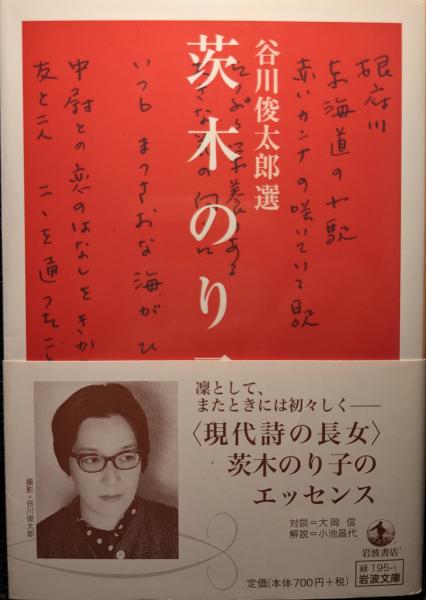 谷川俊太郎選
茨木のり
根府川
東海道の小駅
赤いカンナの咲いている駅
っぷり栄養のある
きな花の向うに
いつも まっさおな海がひ
中尉との恋のはなしをきか
友と二人 ここを通ったこと
凜として、
またときには初々しく――
〈現代詩の長女〉
茨木のり子の
エッセンス
対談=大岡 信
解説=小池昌代
撮影・谷川俊太郎
定価(本体700円+税)
岩波書店
緑195-1
岩波文庫